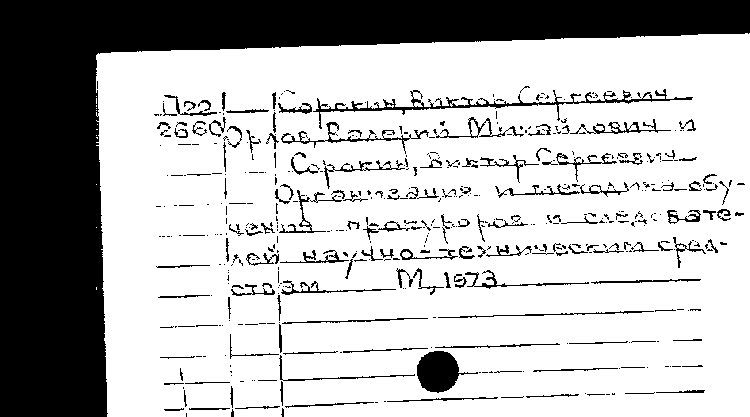 П22 Сорокин, Виктор Сергеевич.
2660 Орлов, Валерий Михайлович и
Сорокин, Виктор Сергеевич
Организация и методика обу-
чения прокуроров и следовате-
лей научно-техническим сред-
ствам. М, 1973.